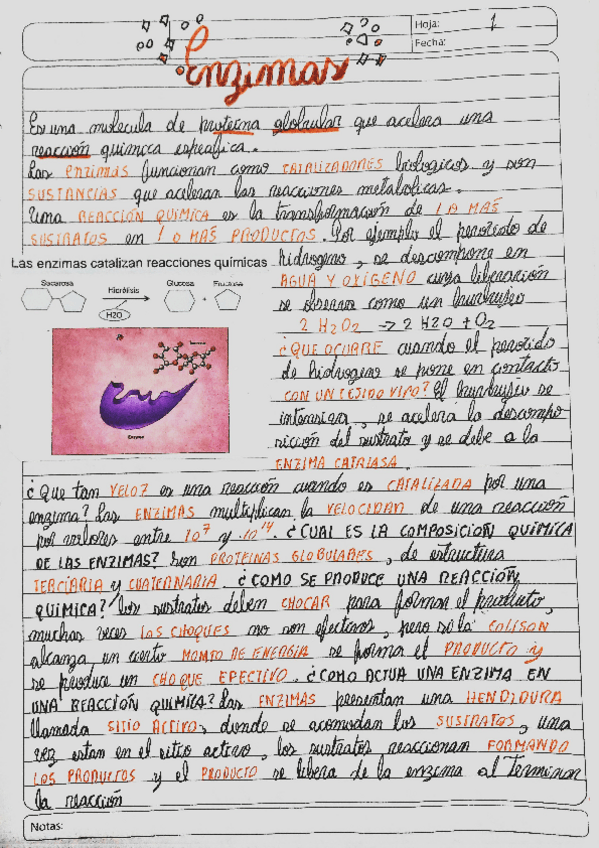 Hoja: 1
Fecha:
Enzimas
Es una molecula de proteina globular que acelera una
reacción quimica especifica.
Las enzimas funcionan como CATALIZADORES biologicos y son
SUSTANCIAS que aceleran las reacciones metabolicas.
Una REACCIÓN QUIMICA es la transformación de 1 O MAS
SUSTRATOS en 1 O MAS PRODUCTOS. Por ejemplo el peroxido de
hidrogeno, se descompone en
AGUA Y OXIGENO cuya liberación
se observa como un burbujeo
2 H2O2 -> 2 H2O + O2
¿QUE OCURRE cuando el peroxido
de hidrogeno se pone en contacto
CON UN TEJIDO VIVO? El burbujeo se
intensifica, se acelera la descompo
sicion del sustrato y se debe a la
ENZIMA CATALASA.
Las enzimas catalizan reacciones químicas
Sacarosa Hidrólisis Glucosa Fructosa
+
H2O
Enzima
¿Que tan VELOZ es una reacción cuando es CATALIZADA por una
enzima? Las ENZIMAS multiplican la VELOCIDAD de una reacción
por valores entre 10^7 y 10^14. ¿CUAL ES LA COMPOSICIÓN QUÍMICA
DE LAS ENZIMAS? Son PROTEINAS GLOBULARES, de estructura
TERCIARIA y CUATERNARIA. ¿COMO SE PRODUCE UNA REACCIÓN
QUÍMICA? Los sustratos deben CHOCAR para formar el producto,
muchas veces LOS CHOQUES no son efectivos, pero si la COLISON
alcanza un cierto MONTO DE ENERGIA se forma el PRODUCTO y
se produce un CHOQUE EFECTIVO. ¿COMO ACTUA UNA ENZIMA EN
UNA REACCIÓN QUIMICA? Las ENZIMAS presentan una HENDIDURA
llamada SITIO ACTIVO, donde se acomodan los SUSTRATOS, una
vez estan en el sitio activo, los sustratos reaccionan FORMANDO
LOS PRODUCTOS y el PRODUCTO se libera de la enzima al terminar
la reacción
Notas: